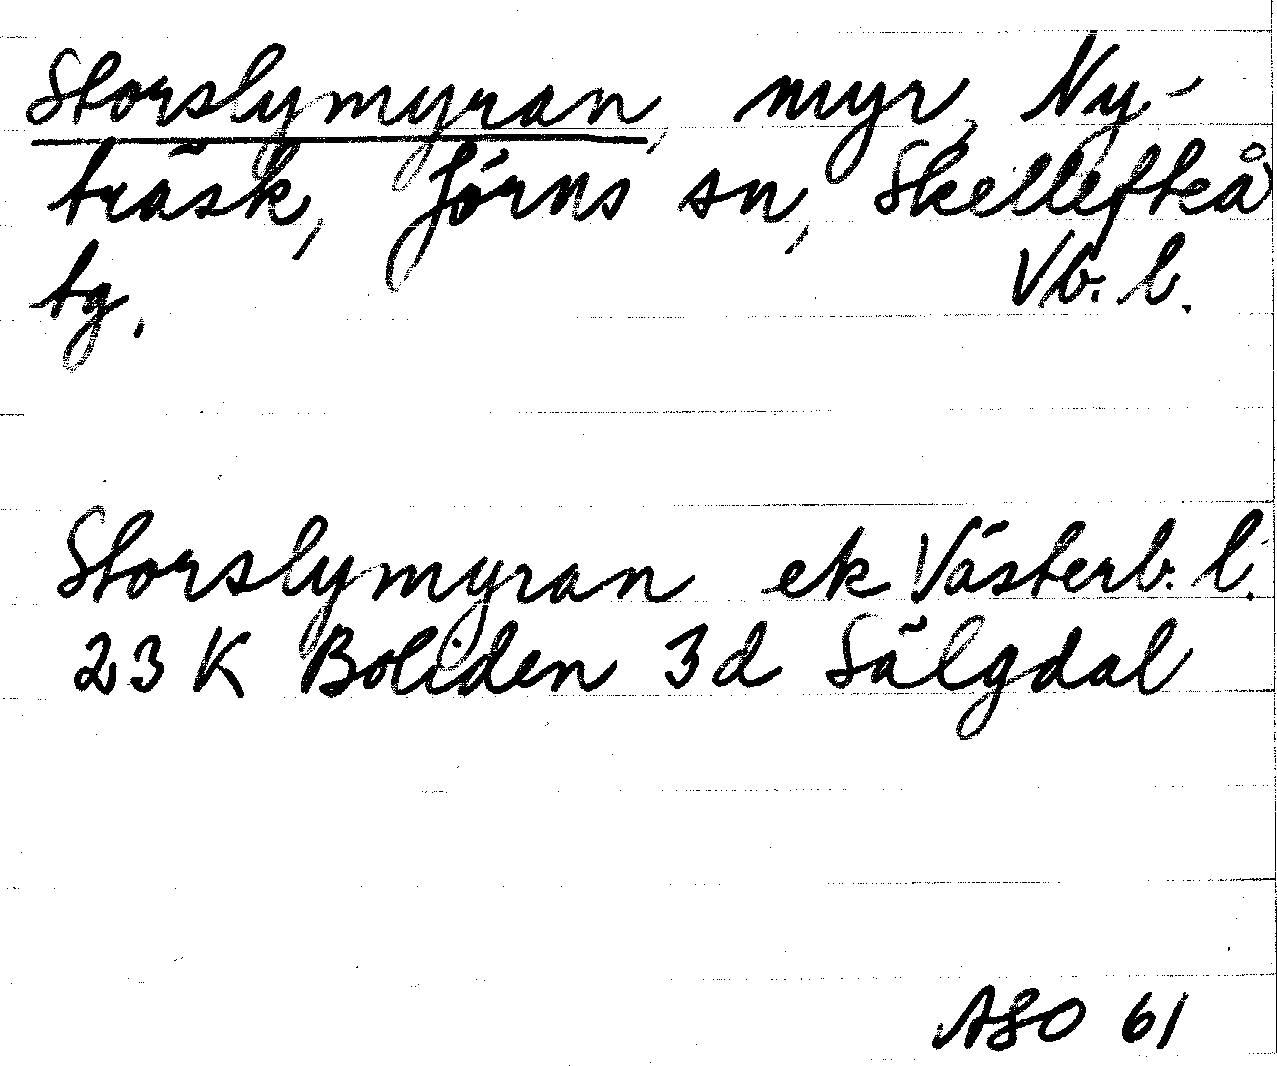 Storslymyran, myr, Ny-
träsk, Jörns sn, Skellefteå
tg. Vb. l.
Storslymyran ek Västerb. l.
23 K Boliden 3d Sälgdal
ASO 61